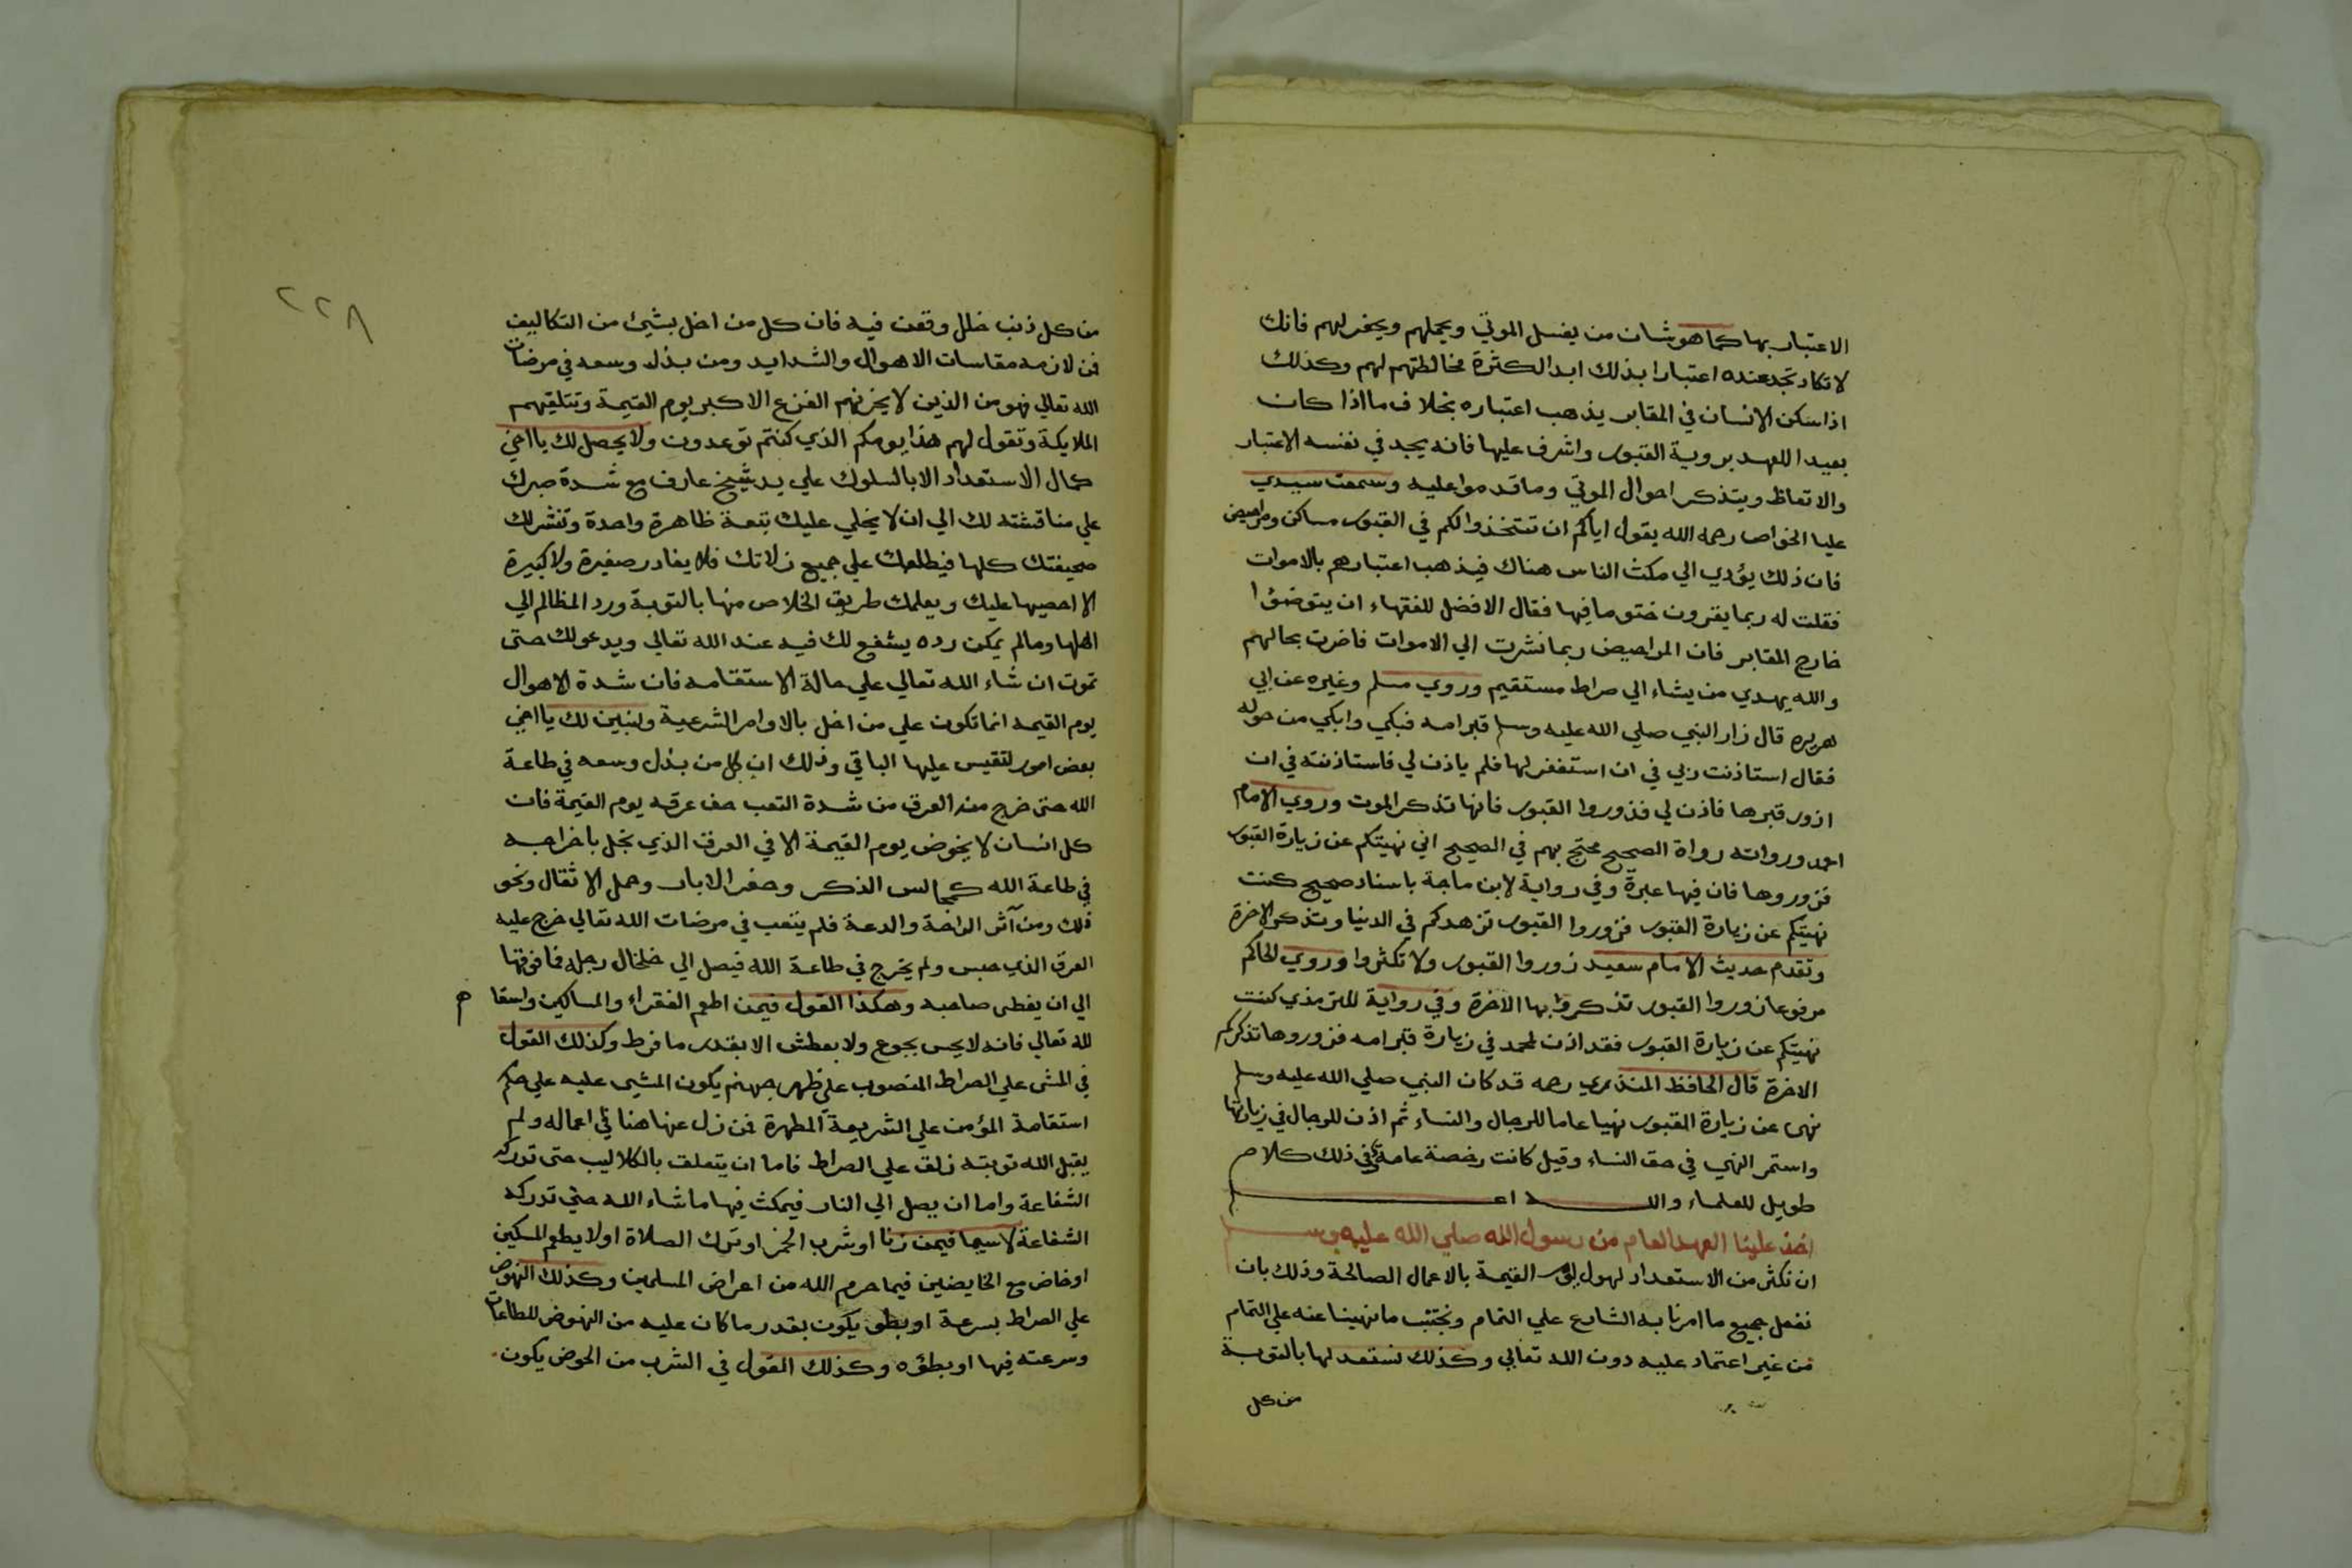 الاعتبار بها كما هو شان من يغسل الموتي ويحملهم ويحفر لهم فانك
لا تكاد تجد عنده اعتبارا بذلك ابدا لكثرة مخالطتهم لهم وكذلك
اذا سكن الانسان في المقابر يذهب اعتباره بخلاف ما اذا كان
بعيد العهد بروية القبور واشرف عليها فانه يجد في نفسه الاعتبار
والاتعاظ ويتذكر احوال الموتي وما قدموا عليه وسمعت سيدي
عليا الخواص رحمه الله يقول اياكم ان تتخذوا لكم في القبور مساكن ومراحيض
فان ذلك يؤدي الي مكث الناس هناك فيذهب اعتبارهم بالاموات
فقلت له ربما يقرون ختوما فيها فقال الافضل للفقهاء ان يتوضؤا
خارج المقابر فان المراحيض ربما نشرت الي الاموات فاضرت بحالهم
والله يهدي من يشاء الي صراط مستقيم وروي مسلم وغيره عن ابي
هريره قال زار النبي صلي الله عليه وسلم قبر امه فبكي وابكي من حوله
فقال استاذنت ربي في ان استغفر لها فلم ياذن لي فاستاذنته في ان
ازور قبرها فاذن لي فزوروا القبور فانها تذكر الموت وروي الامام
احمد ورواته رواة الصحيح محتج بهم في الصحيح اني نهيتكم عن زيارة القبور
فزوروها فان فيها عبرة وفي رواية لابن ماجة باسناد صحيح كنت
نهيتكم عن زيارة القبور فزوروا القبور تزهدكم في الدنيا وتذكر الاخرة
وتقدم حديث الامام سعيد زوروا القبور ولا تكثروا وروي الحاكم
مرفوعا زوروا القبور تذكروا بها الاخرة وفي رواية للترمذي كنت
نهيتكم عن زيارة القبور فقد اذن لمحمد في زيارة قبر امه فزوروها تذكركم
الاخرة قال الحافظ المنذري رحمه قد كان النبي صلي الله عليه وسلم
نهى عن زيارة القبور نهيا عاما للرجال والنساء ثم اذن للرجال في زيارتها
واستمر النهي في حق النساء وقيل كانت رخصة عامة وفي ذلك كلام
طويل للعلماء والله اعلم
اخذ علينا العهد العام من رسول الله صلي الله عليه وسلم
ان نكثر من الاستعداد لهول يوم القيمة بالاعمال الصالحة وذلك بان
نفعل جميع ما امرنا به الشارع علي التمام ونجتنب ما نهينا عنه علي التمام
من غير اعتماد عليه دون الله تعالي وكذلك نستعد لها بالتوبة
من كل
٢٢٨
من كل ذنب خلل وقعت فيه فان كل من اخل بشيئ من التكاليف
فمن لازمه مقاسات الاهوال والشدايد ومن بذل وسعه في مرضات
الله تعالي فهو من الذين لا يحزنهم الفزع الاكبر يوم القيمة وتتلقيهم
الملايكة وتقول لهم هذا يومكم الذي كنتم توعدون ولا يحصل لك يا اخي
كمال الاستعداد الا بالسلوك علي يد شيخ عارف مع شدة صبرك
علي مناقشته لك الي ان لا يخلي عليك تبعة ظاهرة واحدة وتنشر لك
صحيفتك كلها فيطلعك علي جميع زلاتك فلا يغادر صغيرة ولا كبيرة
الا احصيها عليك ويعلمك طريق الخلاص منها بالتوبة ورد المظالم الي
اهلها وما لم يمكن رده يشفع لك فيه عند الله تعالي ويدعو لك حتى
تموت ان شاء الله تعالي علي حالة الاستقامه فان شدة الاهوال
يوم القيمه انما تكون علي من اخل بالاوامر الشرعية ولنبين لك يا اخي
بعض امور لتقيس عليها الباقي وذلك ان كل من بذل وسعه في طاعة
الله حتى خرج منه العرق من شدة التعب خف عرقه يوم القيمة فان
كل انسان لا يخوض يوم القيمة الا في العرق الذي بخل باخراجه
في طاعة الله كمجالس الذكر وحفر الابار وحمل الاثقال ونحو
ذلك ومن آثر الراحة والدعة فلم يتعب في مرضات الله تعالي خرج عليه
العرق الذي حبس ولم يخرج في طاعة الله فيصل الي خلخال رجله فما فوقها
الي ان يغطى صاحبه وهكذا القول فيمن اطعم الفقراء والمساكين واسقاهم
لله تعالي فانه لا يحس بجوع ولا بعطش الا بقدر ما فرط وكذلك القول
في المشي علي الصراط المنصوب علي ظهر جهنم يكون المشي عليه علي حكم
استقامة المؤمن علي الشريعة المطهرة فمن زل عنها هنا في اعماله ولم
يقبل الله توبته زلق علي الصراط فاما ان يتعلق بالكلاليب حتى تدركه
الشفاعة واما ان يصل الي النار فيمكث فيها ما شاء الله حتي تدركه
الشفاعة لاسيما فيمن زنا او شرب الخمر او ترك الصلاة او لا يطعم المسكين
او خاض مع الخايضين فيما حرم الله من اعراض المسلمين وكذلك النهوض
علي الصراط بسرعة او بطئ يكون بقدر ما كان عليه من النهوض للطاعات
وسرعته فيها او بطؤه وكذلك القول في الشرب من الحوض يكون